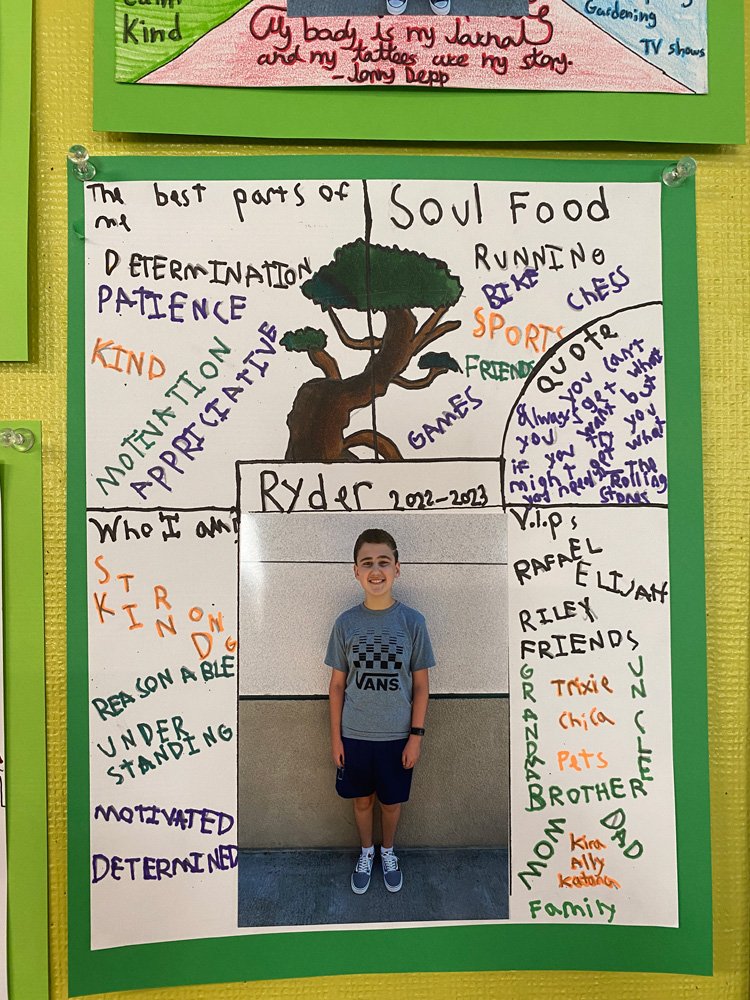 Calm
Kind
My body is my Jarnal
and my tattoes are my story.
- Jonny Depp
Gardening
TV shows
The best parts of
me
DETERMINATION
PATIENCE
KIND
MOTIVATION
APPRICIATIVE
Soul Food
RUNNING
BIKE
CHESS
SPORTS
FRIENDS
GAMES
QUOTE
you can't
Always get what
you want but
if you try you
might get what
you need - The
Rolling
Stones
Ryder 2022-2023
Who I am
STRONG
KIND
REASONABLE
UNDER
STANDING
MOTIVATED
DETERMINED
VANS
V.I.P.s
RAFAEL
ELIJAH
RILEY
FRIENDS
GRANDMA
Trixie
Chica
Pets
UNCLE
BROTHER
MOM
DAD
Kira
Ally
Katana
Family